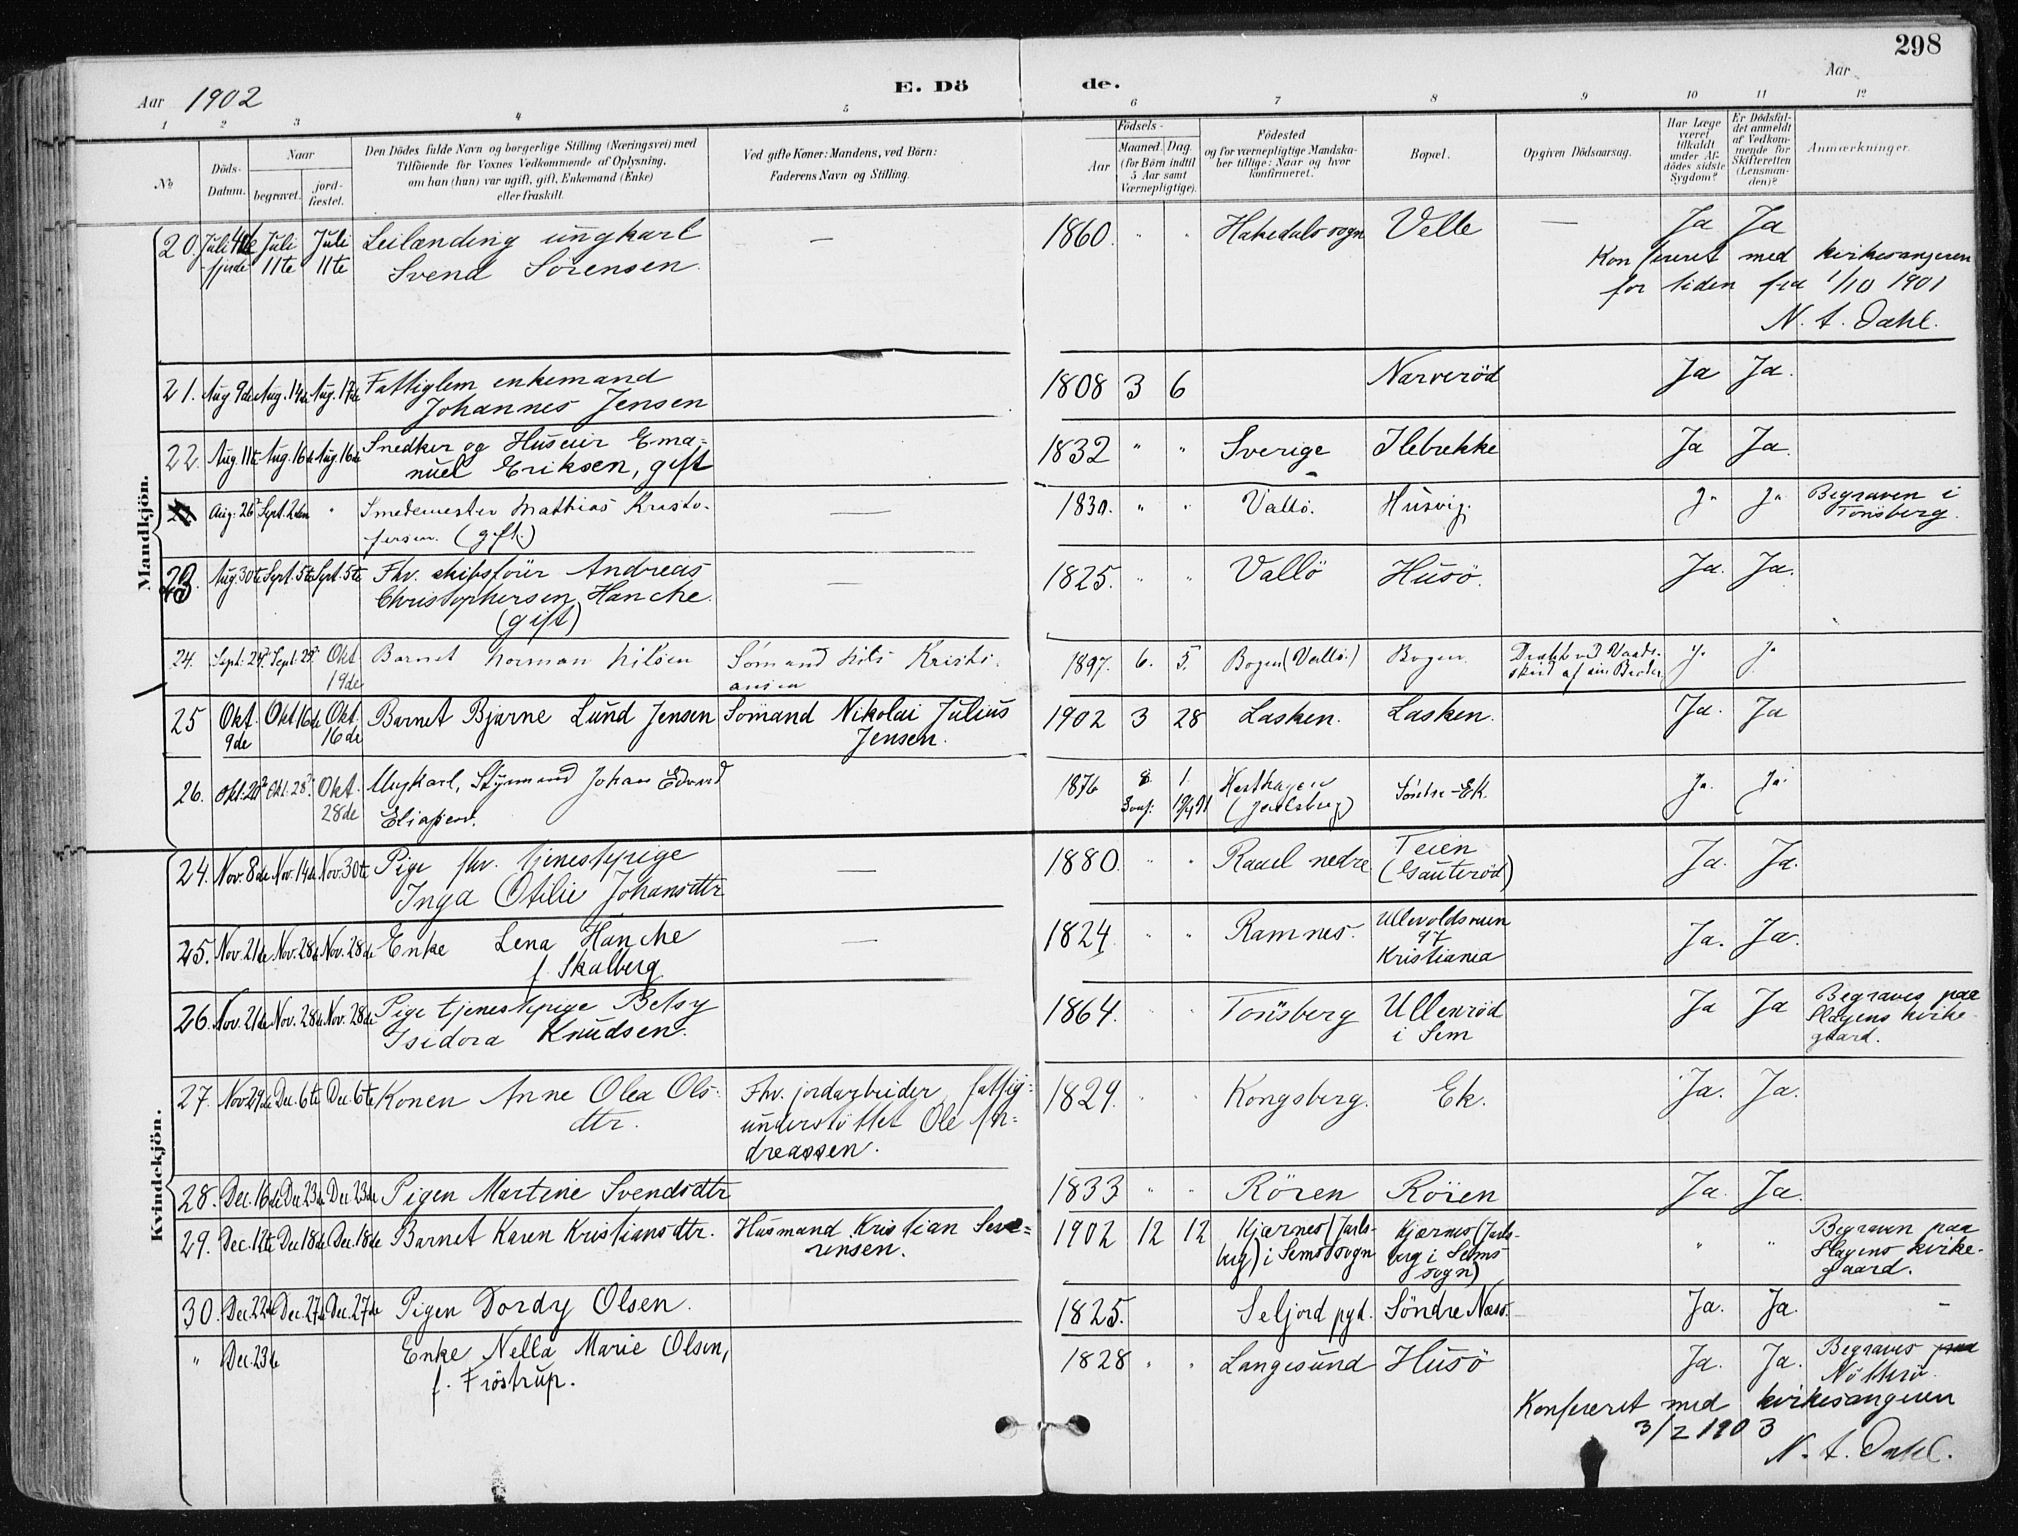 298
Aar 1902
E. Dö
de.
Aar
1 2 3 4 5 6 7 8 9 10 11 12
No
Döds-
Datum.
Naar
begravet.
jord-
fæstet.
Den Dödes fulde Navn og borgerlige Stilling (Næringsvei) med
Tilföiende for Voxnes Vedkommende af Oplysning,
om han (hun) var ugift, gift, Enkemand (Enke)
eller fraskilt.
Ved gifte Koner: Mandens, ved Börn:
Faderens Navn og Stilling.
Födsels-
Aar
Maaned. Dag.
(for Börn indtil
5 Aar samt
Værnepligtige).
Födested
og for værnepligtige Mandska-
ber tillige: Naar og hvor
konfirmeret.
Bopæl.
Opgiven Dödsaarsag.
Har Læge
været
tilkaldt
under Af-
dödes sidste
Sygdom?
Er Dödsfal-
det anmeldt
af Vedkom-
mende for
Skifteretten
(Lensman-
den)?
Anmærkninger.
Mandkjön.
20. Juli 4de Juli Juli Leilænding ungkarl — 1860. " " Hakedals sogn Velle — Ja Ja
fjerde 11te 11te Svend Sörensen.
Konfereret med kirkesangeren
for tiden fra 1/10 1901
N. A. Dahl.
21. Aug 9de Aug. 14de Aug. 17de Fattiglem enkemand 1808 3 6 Narveröd Ja Ja.
Johannes Jensen
22. Aug. 11te Aug. 16de Aug. 16de Snedker og Huseier Ema- 1832 " " Sverige Ilebrekke Ja Ja.
nuel Eriksen, gift
Aug. 26 Sept. 2den " Smedemester Mathias Kristo- — 1830. " " Vallö. Husvig. Ja Ja Begraven i
fersen. (gift.) Tönsberg.
23 Aug. 30te Sept. 5te Sept. 5te Fhv. skibsförer Andreas — 1825. " " Vallö Husö. Ja. Ja.
Christophersen Hanche.
(gift)
24. Sept. 24 Sept. 29 Okt Barnet Norman Nilsen Sömand Nils Kristi- 1897. 6. 5. Bogen (Vallö.) Bogen. Dræbt ved Vaade- Ja Ja
19de ansen skud af sin Broder.
25 Okt. Okt 16de Okt. Barnet Bjarne Lund Jensen Sömand Nikolai Julius 1902 3 28 Lasken. Lasken. Ja. Ja
9de 16de Jensen.
26. Okt. 20de Okt. 28de Okt. Ungkarl, Styrmand Johan Edvard 1876 8. 1. Hesthagen Söndre-Ek. Ja. Ja.
28de Eliassen. Konf. (Jarlsberg)
Kvindekjön.
24. Nov. 8de Nov. 14de Nov. 30te Pige fhv. tjenestepige — 1880. " " Raael nedre Teien Ja. Ja.
Inga Otilie Johansdtr (Gauteröd)
25. Nov. 21de Nov. 28de Nov. 28de Enke Lena Hanche — 1824 " " Ramnes. Ullevoldsveien Ja. Ja.
f. Skalberg 97
Kristiania
26. Nov. 21de Nov. 28de Nov. 28de Pige tjenestepige Betsy 1864. " " Tönsberg Ulleneröd Ja Ja Begraves paa
Isidora Knudsen. i Sem Slagens kirke-
gaard.
27. Nov. 29de Dec. 6te Dec. 6te Konen Anne Olea Ols- Fhv. jordarbeider, fattig- 1829. " " Kongsberg. Ek. Ja. Ja.
dtr. understöttet Ole An-
dreassen.
28. Dec. 16de Dec 23de Dec. 23de Pigen Martine Svendsdtr 1833 " " Rören Rören Ja. Ja.
29. Dec. 12te Dec 18de Dec. 18de Barnet Karen Kristiansdtr. Husmand Kristian Seve- 1902 12 12 Kjærnes (Jarls- Kjærnes (Jarls- " " Begraven paa
rinsen. berg) i Sems sogn berg i Sems Slagens kirke-
sogn) gaard.
30. Dec. 22de Dec. 27de Dec. 27de Pigen Dordy Olsen. 1825. Seljord pgd. Söndre Næss. Ja. Ja. -
" Dec. 23de Enke Nella Marie Olsen, 1828 " " Langesund Husö Ja. Ja. Begraves paa
f. Fröstrup. Nötterö.
Konfereret med kirkesangeren
3/2 1903
N. A. Dahl.